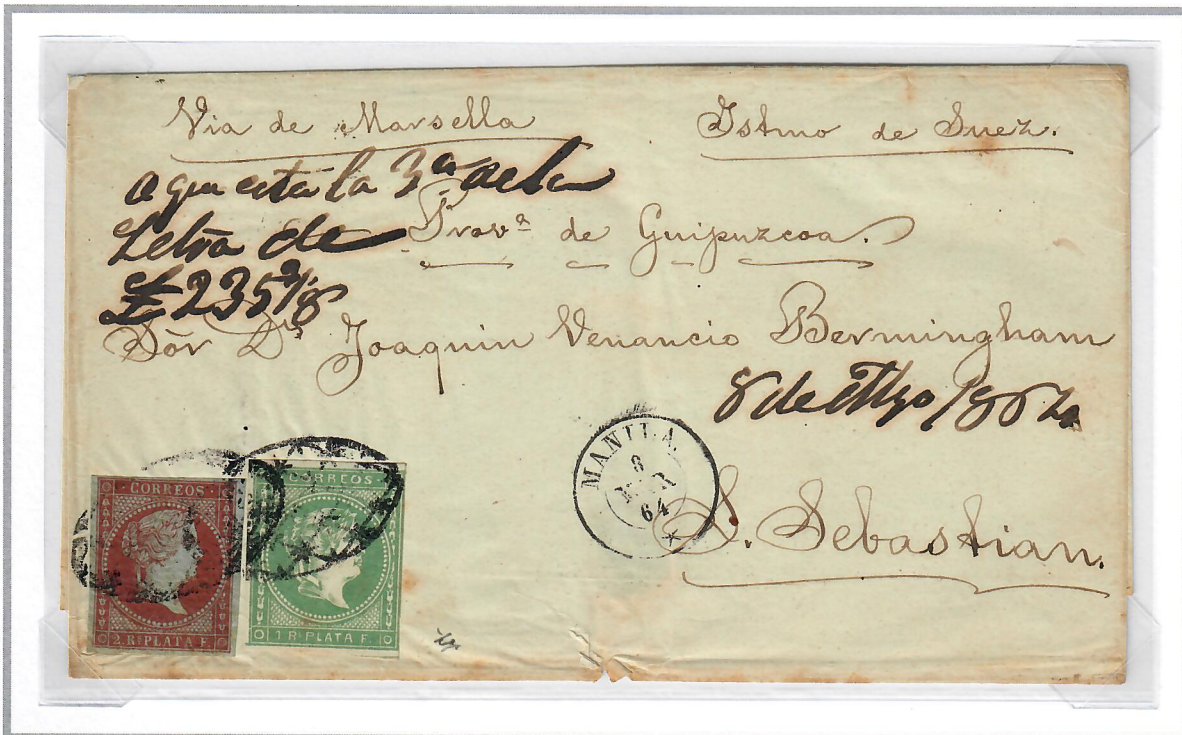 Via de Marsella
Istmo de Suez.
aqui está la 3ª de la
Letra de
£ 235
Provª de Guipuzcoa.
Sör Dⁿ Joaquin Venancio Bermingham
8 de Mzo 1864
MANILA
8
MAR
64
S. Sebastian.
CORREOS
2 Rˢ PLATA F.
CORREOS
1 R PLATA F.